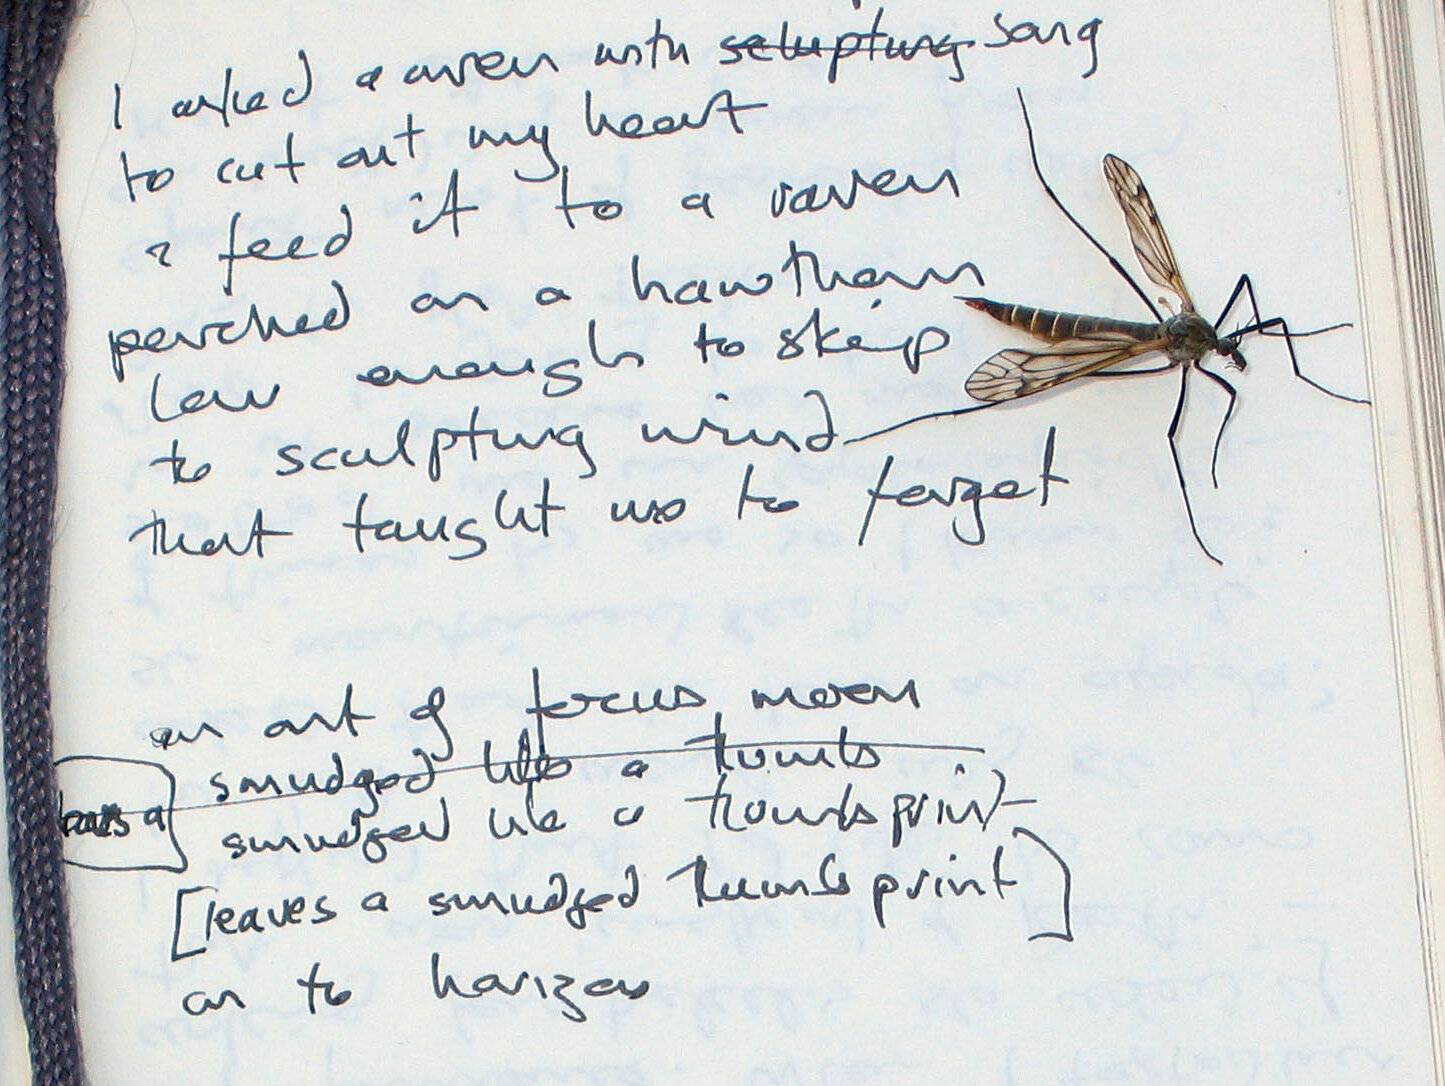 I asked a wren with sculpting song
to cut out my heart
& feed it to a raven
perched on a hawthorn
low enough to skip
to sculpting wind
that taught us to forget
an out of focus moon
smudged like a thumb
leaves a
smudged like a thumbsprint
[leaves a smudged thumbs print]
on to horizon